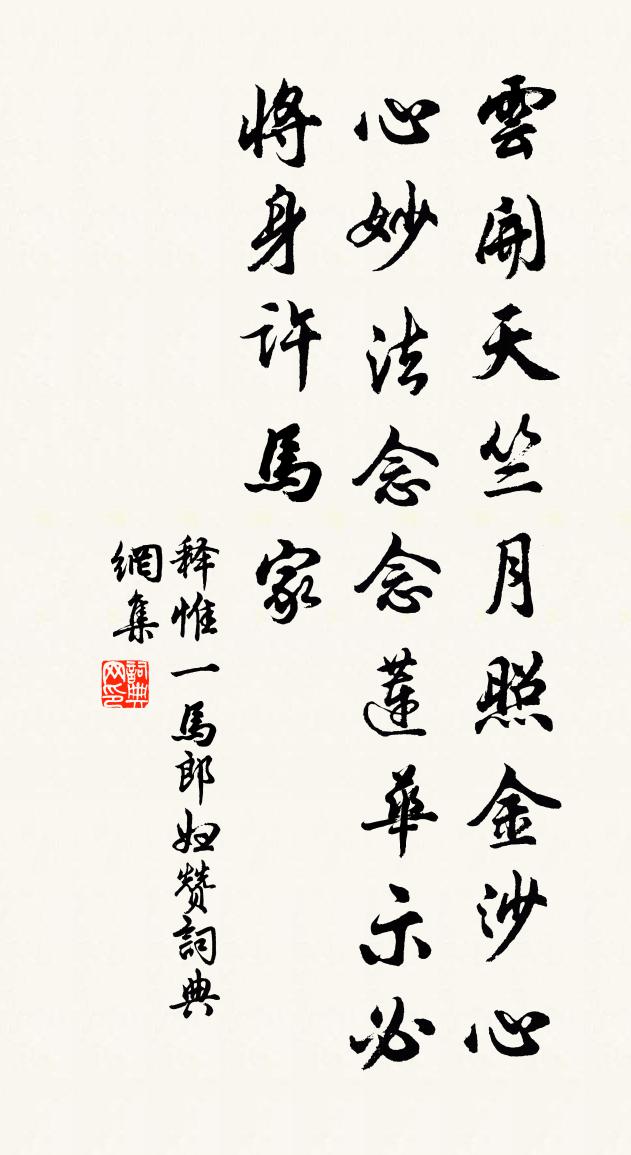 雲開天竺月照金沙心
心妙法念念蓮華示必
將身許馬家
释惟一馬郎妇赞詞典
網集
詞典
网印